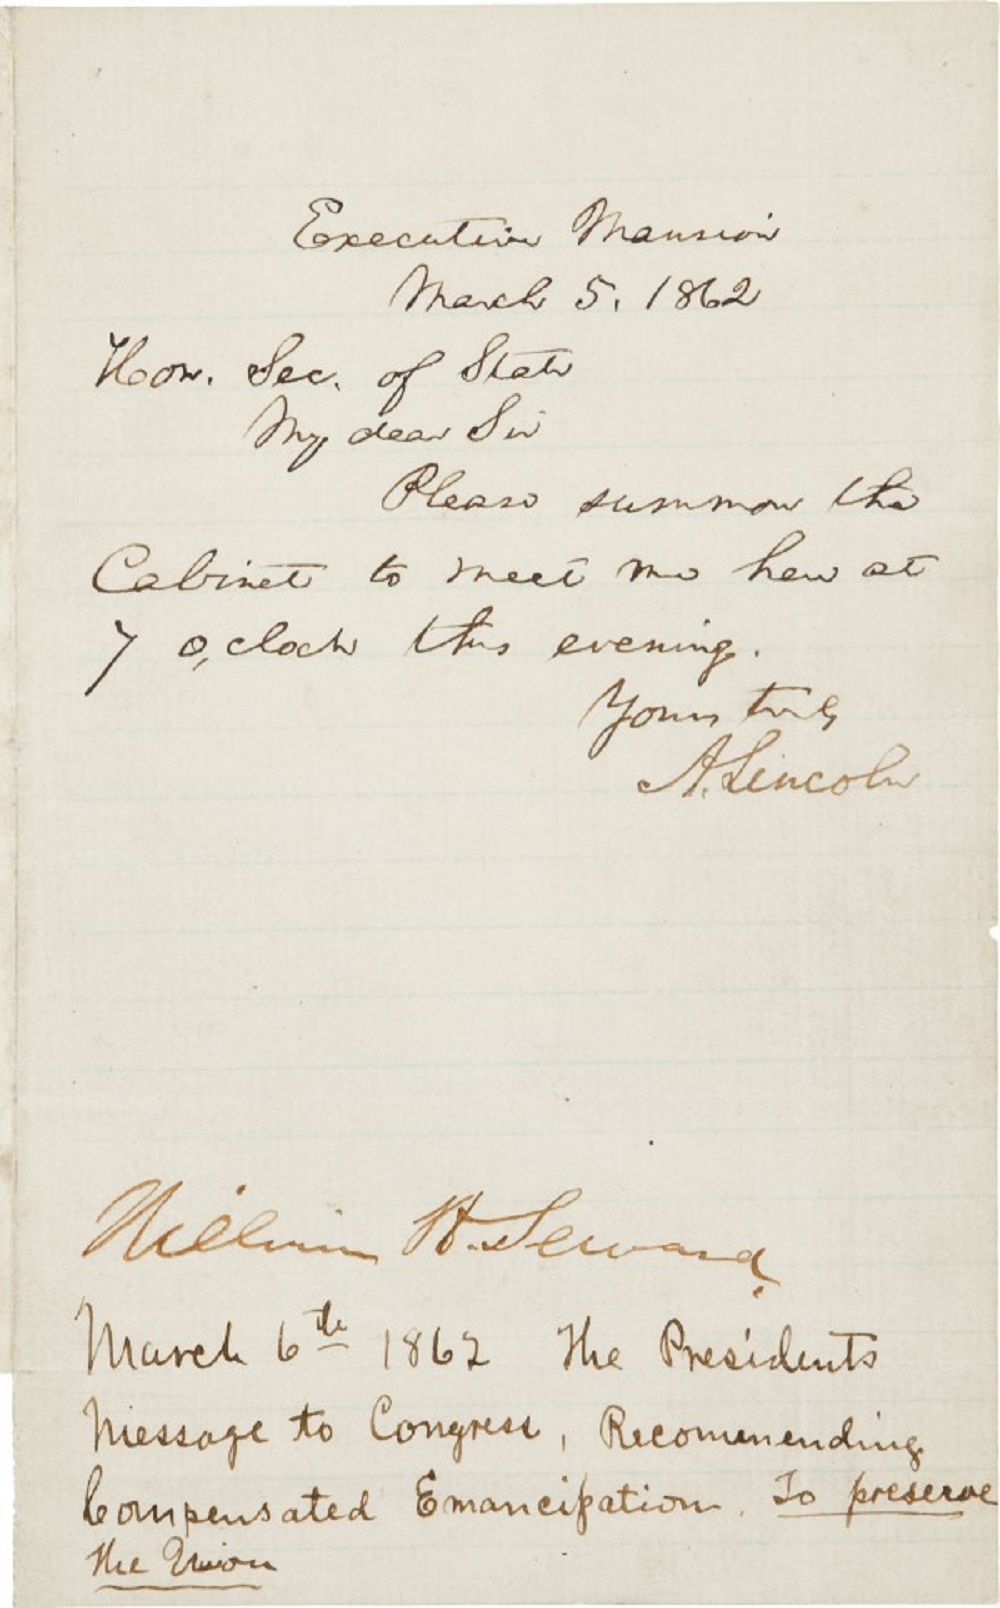 Executive Mansion
March 5. 1862
Hon. Sec. of State
My dear Sir
Please summon the
Cabinet to meet me here at
7 o,clock this evening.
Yours truly
A. Lincoln
William H. Seward.
March 6th 1862 The Presidents
Message to Congress, Recommending
Compensated Emancipation. To preserve
the Union